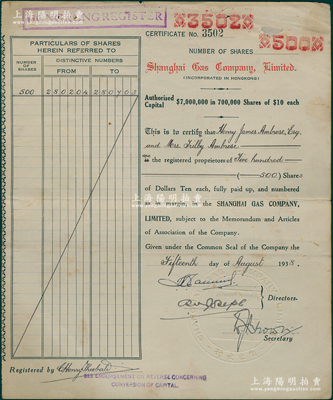 上海陽明拍卖
REGISTER
3502
CERTIFICATE No. 3502
500
NUMBER OF SHARES
Shanghai Gas Company, Limited.
(INCORPORATED IN HONGKONG)
Authorized Capital $7,000,000 in 700,000 Shares of $10 each
PARTICULARS OF SHARES
HEREIN REFERRED TO
NUMBER OF SHARES
DISTINCTIVE NUMBERS
FROM TO
500 280204 280703
This is to certify that Henry James Ambrose, Esq.
and Mrs. Ambrose
the registered proprietors of Five hundred
(500) Shares
of Dollars Ten each, fully paid up, and numbered
as in margin, in the SHANGHAI GAS COMPANY,
LIMITED, subject to the Memorandum and Articles
of Association of the Company.
Given under the Common Seal of the Company the
Fifteenth day of August 1935.
Directors.
Secretary
Registered by
SEE ENDORSEMENT ON REVERSE CONCERNING
CONVERSION OF CAPITAL.
上海陽明拍卖